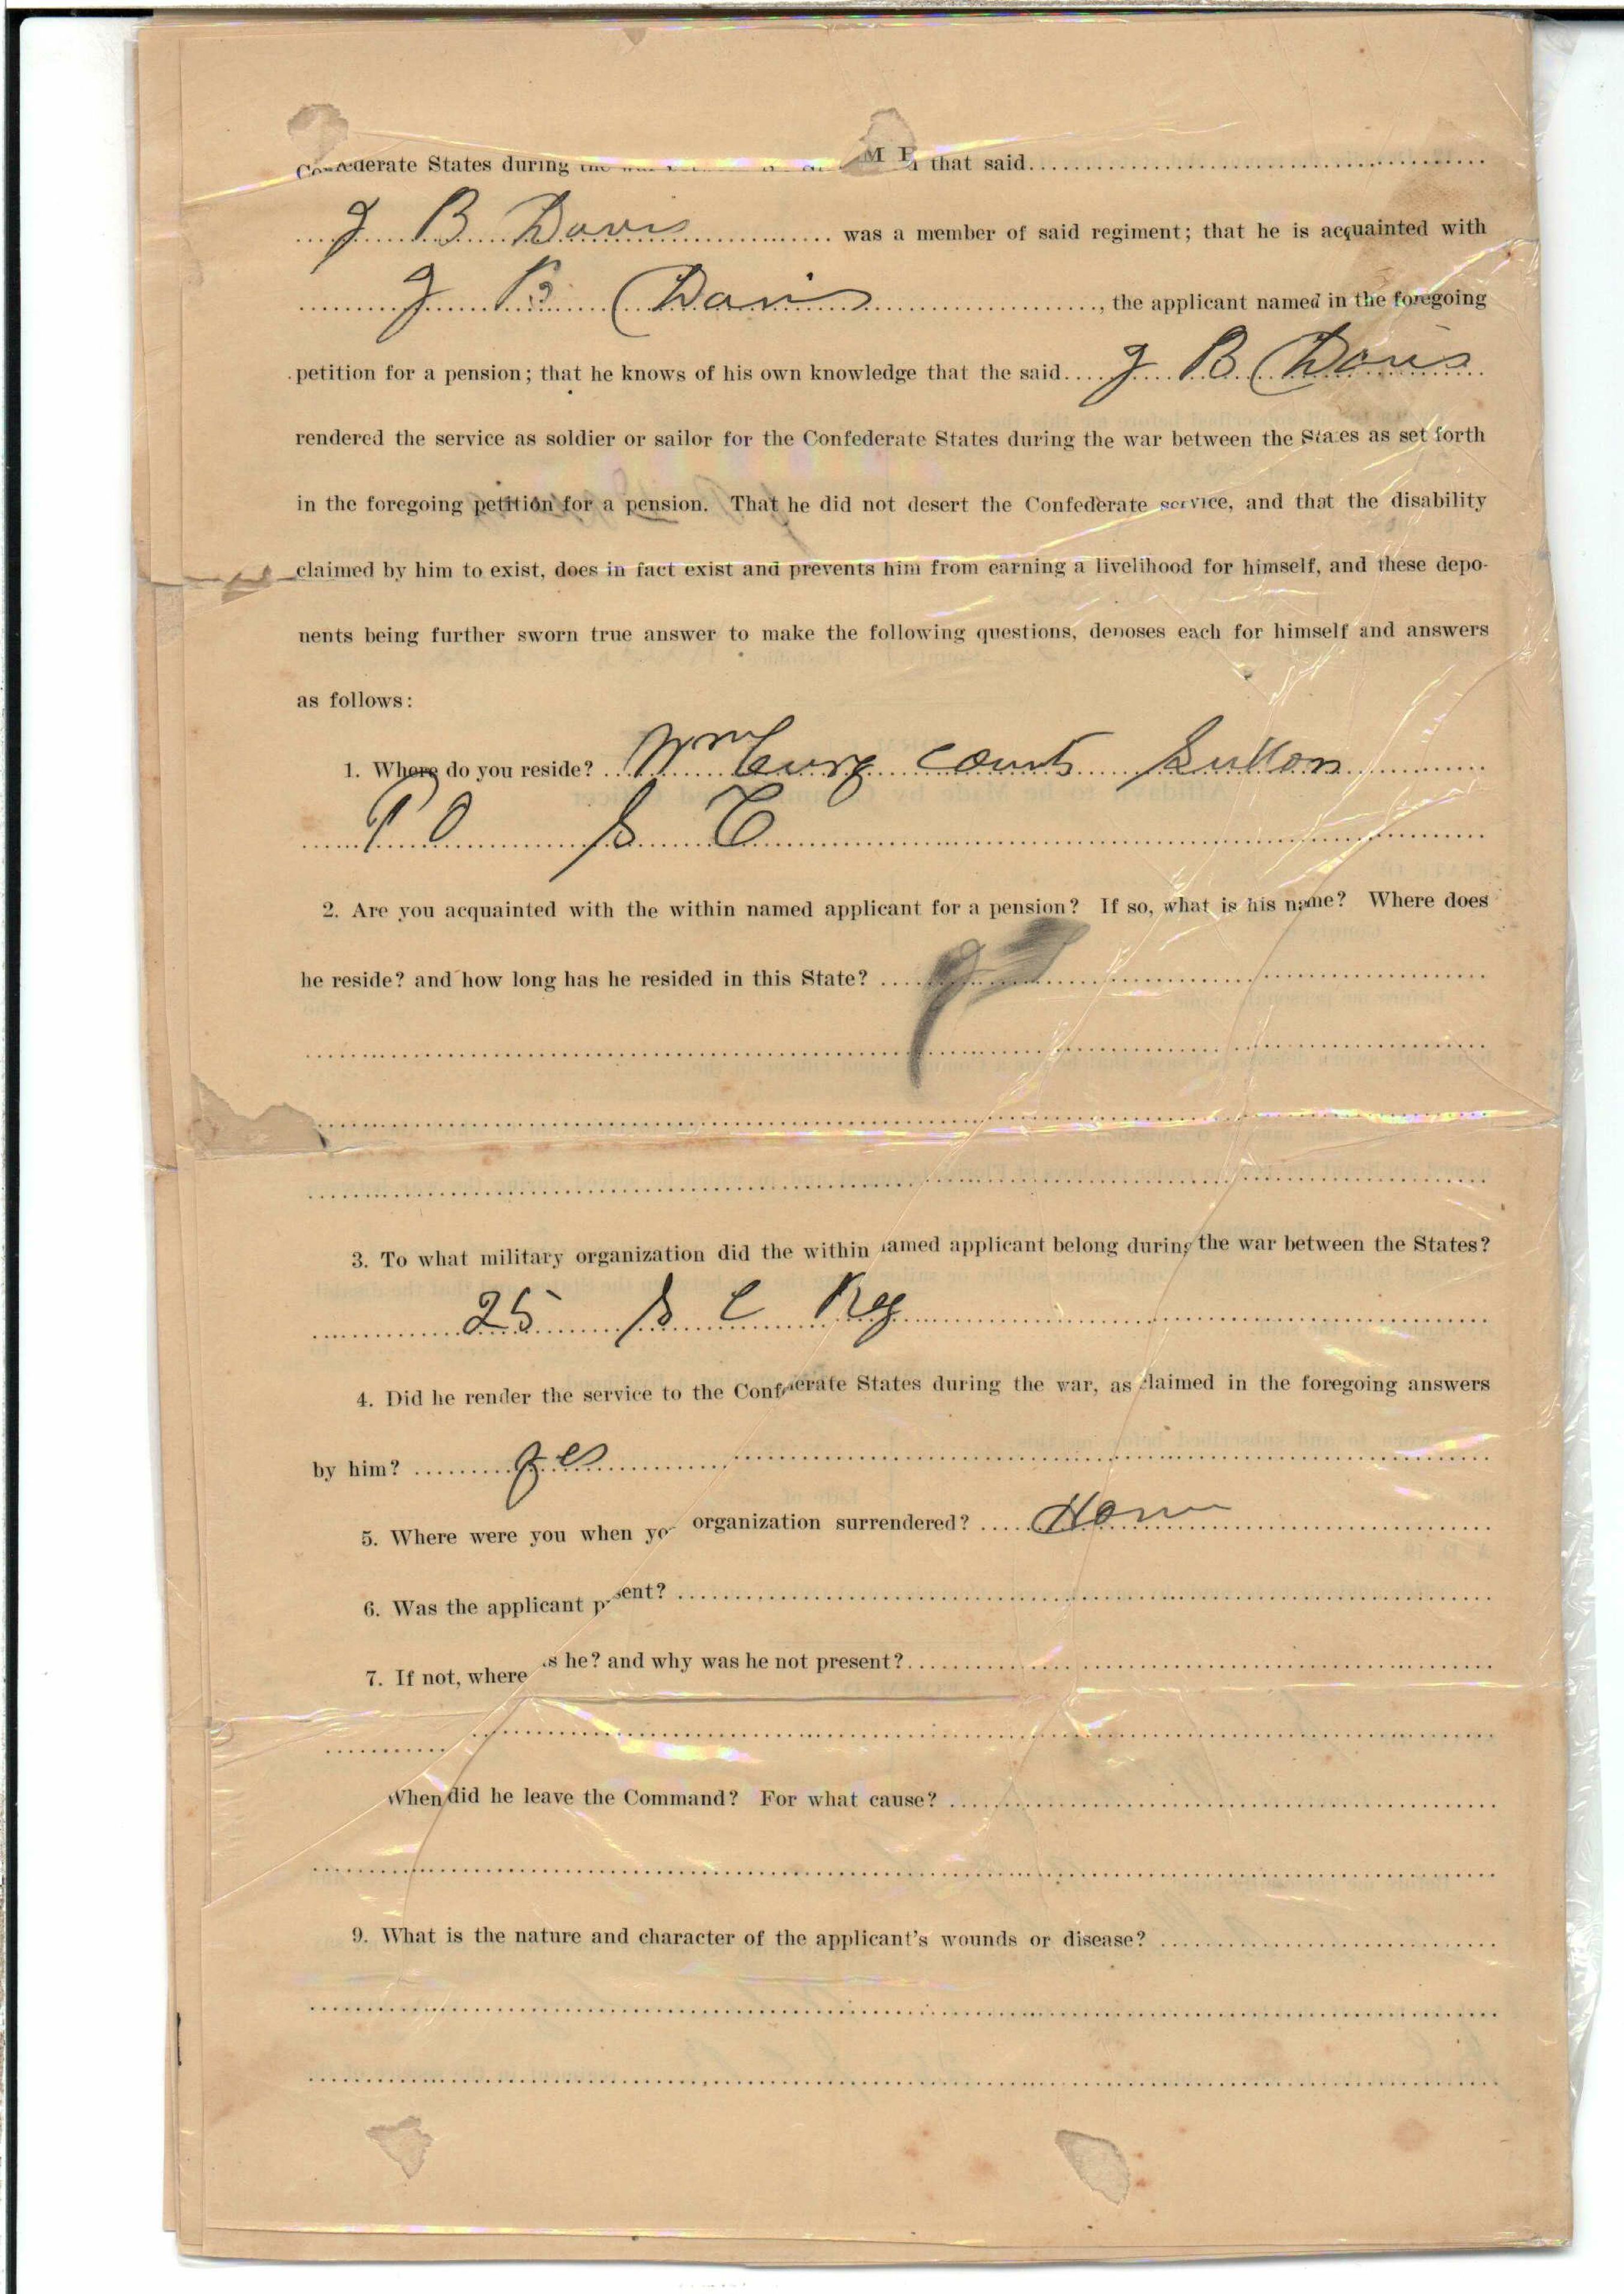 Confederate States during the that said
J B Davis was a member of said regiment; that he is acquainted with
J B Davis, the applicant named in the foregoing
petition for a pension; that he knows of his own knowledge that the said J B Davis
rendered the service as soldier or sailor for the Confederate States during the war between the States as set forth
in the foregoing petition for a pension. That he did not desert the Confederate service, and that the disability
claimed by him to exist, does in fact exist and prevents him from earning a livelihood for himself, and these depo-
nents being further sworn true answer to make the following questions, deposes each for himself and answers
as follows:
1. Where do you reside? Wmburg County Sutton
P O S C
2. Are you acquainted with the within named applicant for a pension? If so, what is his name? Where does
he reside? and how long has he resided in this State?
3. To what military organization did the within named applicant belong during the war between the States?
25 S C Reg
4. Did he render the service to the Confederate States during the war, as claimed in the foregoing answers
by him? yes
5. Where were you when yo organization surrendered? Home
6. Was the applicant present?
7. If not, where was he? and why was he not present?
When did he leave the Command? For what cause?
9. What is the nature and character of the applicant's wounds or disease?